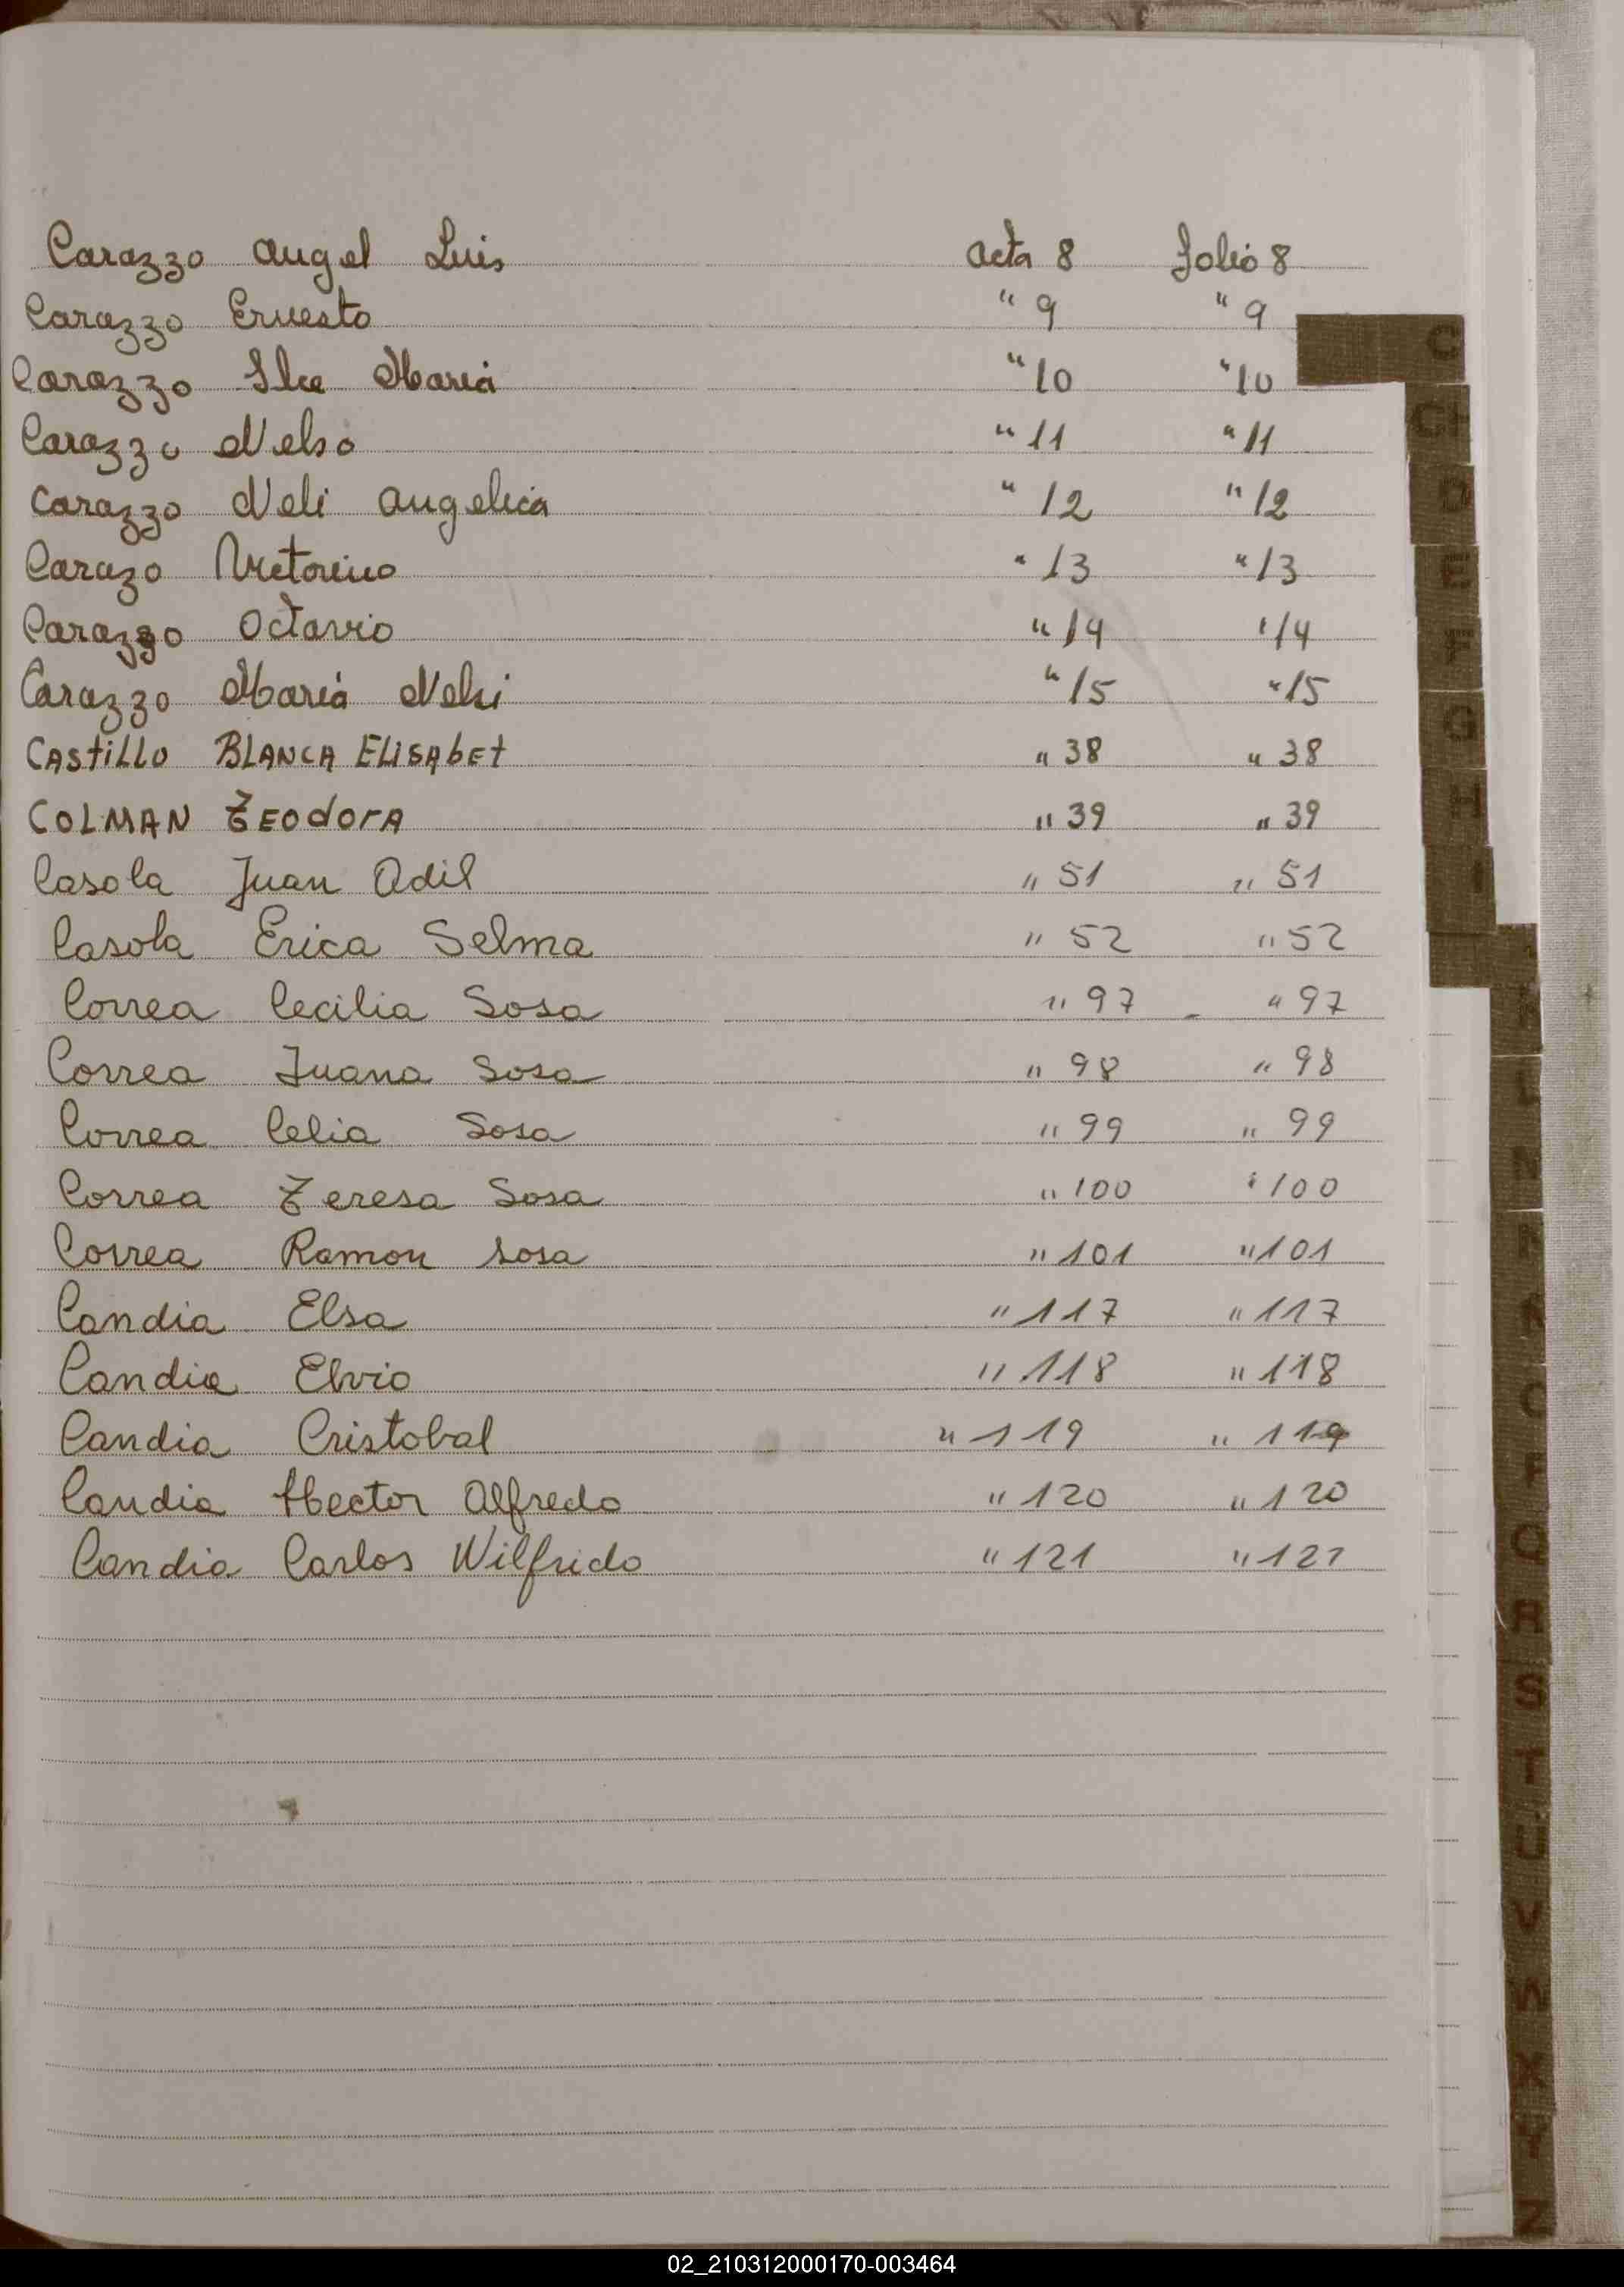 Carazzo Angel Luis acta 8 folio 8
Carazzo Ernesto " 9 " 9
Carazzo Ilce Maria " 10 " 10
Carazzo Nelso " 11 " 11
Carazzo Neli Angelica " 12 " 12
Carazo Victorino " 13 " 13
Carazzo Octavio " 14 " 14
Carazzo Maria Nelsi " 15 " 15
CAStiLLO BLANCA ELISAbEt " 38 " 38
COLMAN TEOdOrA " 39 " 39
Casola Juan Adil " 51 " 51
Casola Erica Selma " 52 " 52
Correa Cecilia Sosa " 97 - " 97
Correa Juana Sosa " 98 " 98
Correa Celia Sosa " 99 " 99
Correa Teresa Sosa " 100 " 100
Correa Ramon Sosa " 101 " 101
Candia Elsa " 117 " 117
Candia Elvio " 118 " 118
Candia Cristobal " 119 " 119
Candia Hector Alfredo " 120 " 120
Candia Carlos Wilfrido " 121 " 121
C
CH
D
E
F
G
H
I
L
M
N
O
P
Q
R
S
T
U
V
X
Y
Z
02_210312000170-003464